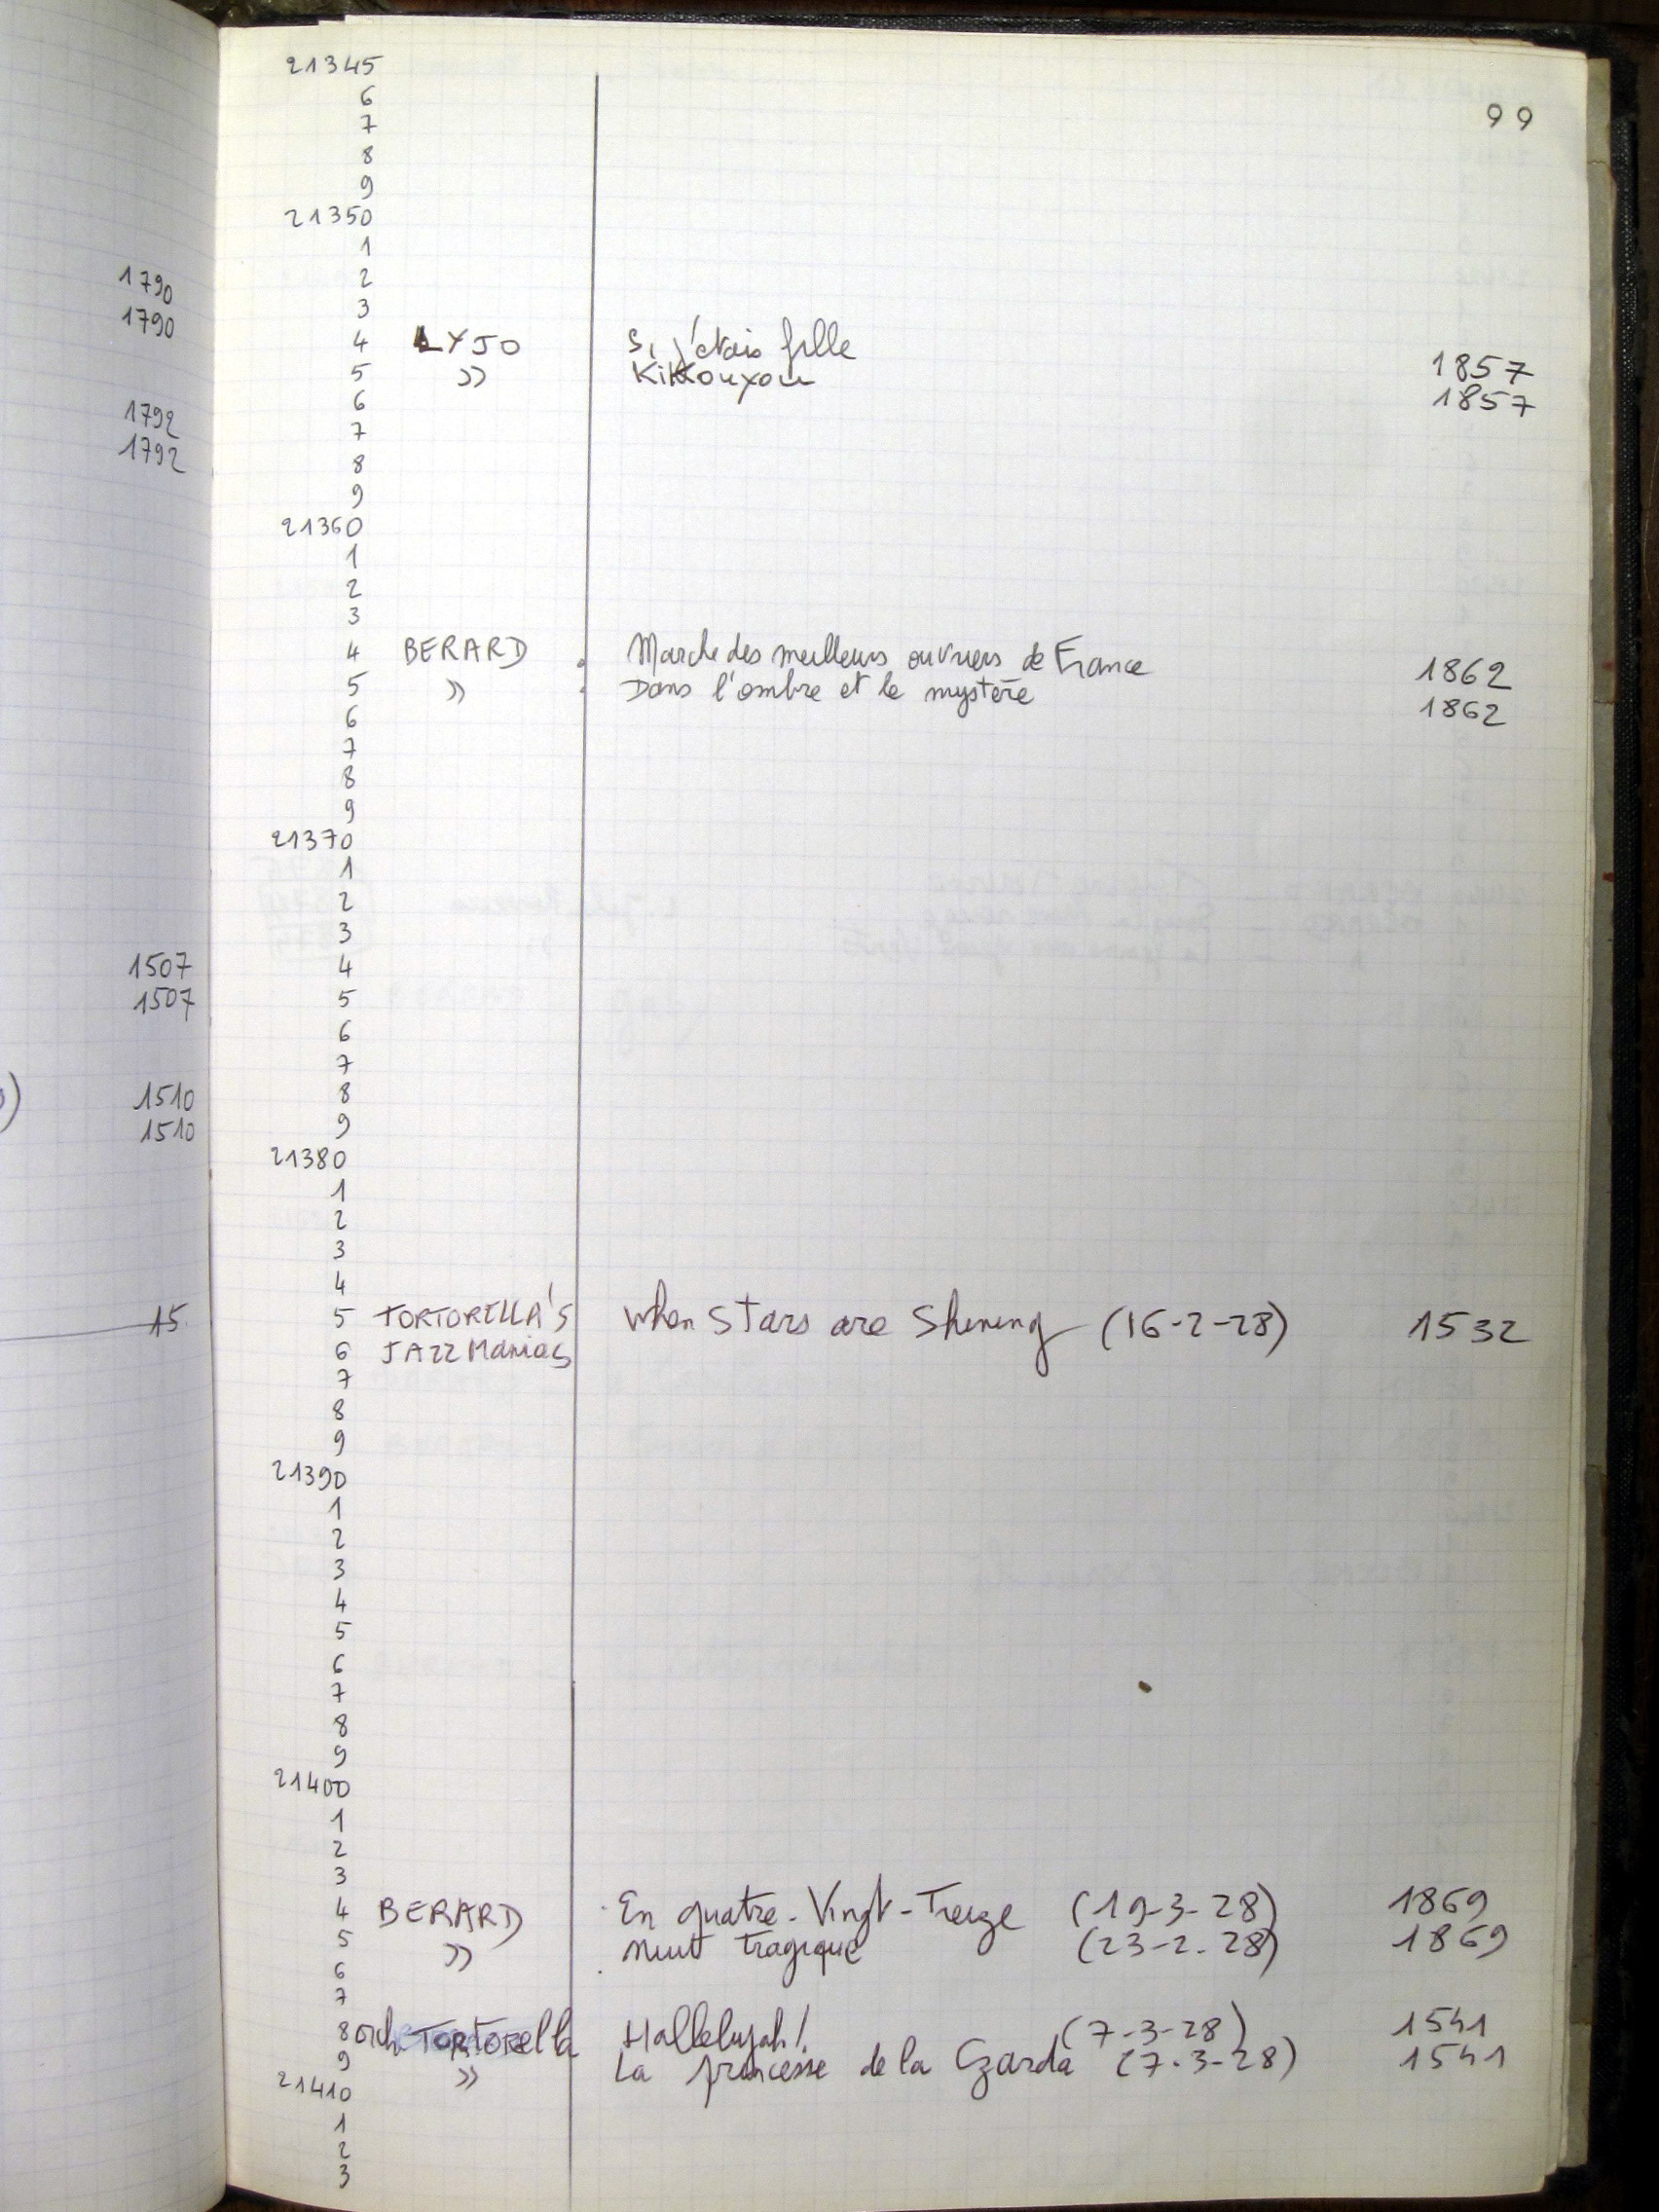 99
21345
6
7
8
9
21350
1
2
3
4 LYJO Si j'étais fille 1857
5 » Kikkouyou 1857
6
7
8
9
21360
1
2
3
4 BERARD Marche des meilleurs ouvriers de France 1862
5 » Dans l'ombre et le mystère 1862
6
7
8
9
21370
1
2
3
4
5
6
7
8
9
21380
1
2
3
4
5 TORTORELLA'S When Stars are Shining (16-2-28) 1532
6 JAZZ Maniacs
7
8
9
21390
1
2
3
4
5
6
7
8
9
21400
1
2
3
4 BERARD En quatre-Vingt-Treize (19-3-28) 1869
5 » Nuit tragique (23-2-28) 1869
6
7
8 orch Tortorella Hallelujah! (7-3-28) 1541
9 » La princesse de la Czarda (7-3-28) 1541
21410
1
2
3
1790
1790
1792
1792
1507
1507
1510
1510
15